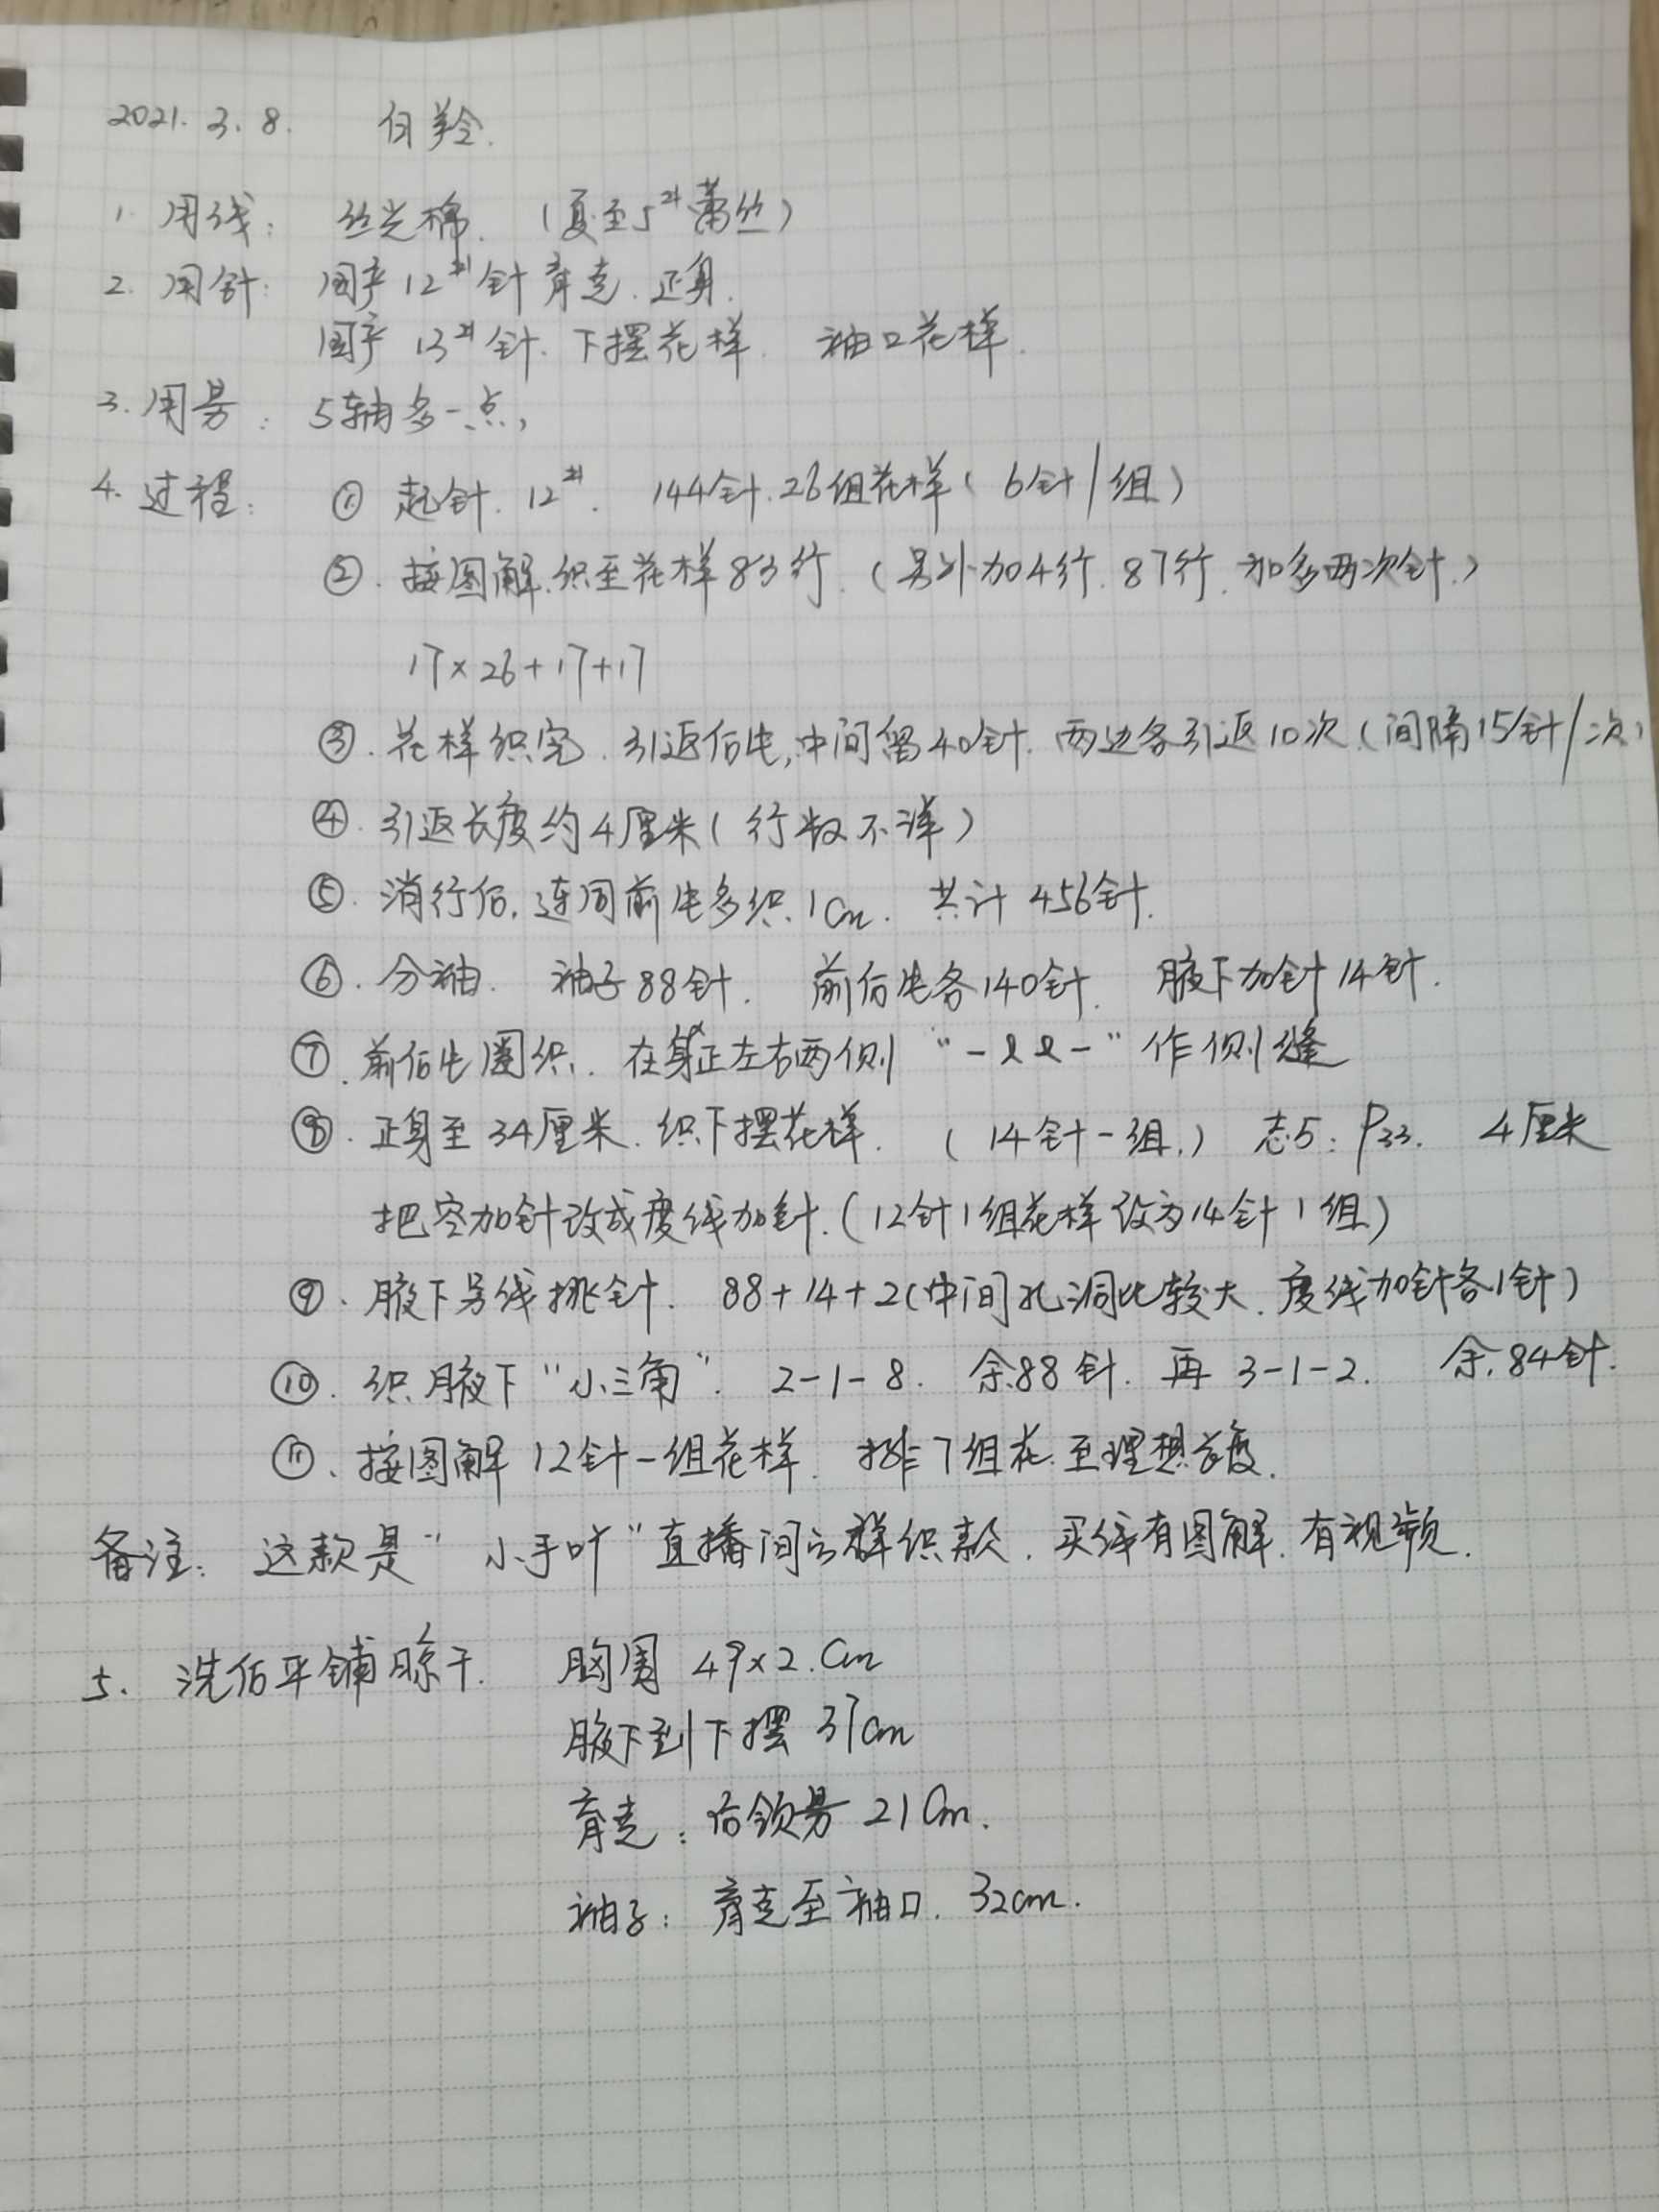 2021.3.8. 白羚.
1. 用线: 丝光棉. (夏至5#蕾丝)
2. 用针: 国产12#针 育克. 正身.
国产 13#针. 下摆花样. 袖口花样.
3. 用量: 5轴多一点,
4. 过程: ① 起针. 12#. 144针. 26组花样 (6针/组)
②. 按图解.织至花样83行. (另外加4行. 87行. 加多两次针.)
17×26+17+17
③. 花样织完. 引返后片, 中间留40针. 两边各引返10次 (间隔15针/次)
④. 引返长度约4厘米 (行数不详)
⑤. 消行后, 连同前片多织1cm. 共计 456针.
⑥. 分袖. 袖子88针. 前后片各140针. 腋下加针14针.
⑦. 前后片圈织. 在正左右两侧 "-ℓℓ-" 作侧缝
⑧. 正身至34厘米. 织下摆花样. (14针一组.) 志5: P33. 4厘米
把空加针改成度线加针. (12针1组花样改为14针1组)
⑨. 腋下另线挑针. 88+14+2(中间孔洞比较大. 度线加针各1针)
⑩. 织腋下"小三角". 2-1-8. 余88针. 再 3-1-2. 余.84针.
⑪、按图解12针一组花样. 排7组花.至理想长度.
备注: 这款是"小手吖"直播间の群织款. 买线有图解. 有视频.
5. 洗后平铺晾干. 胸围 49×2.cm
腋下到下摆 37cm
育克: 后领量 21cm.
袖子: 育克至袖口. 32cm.